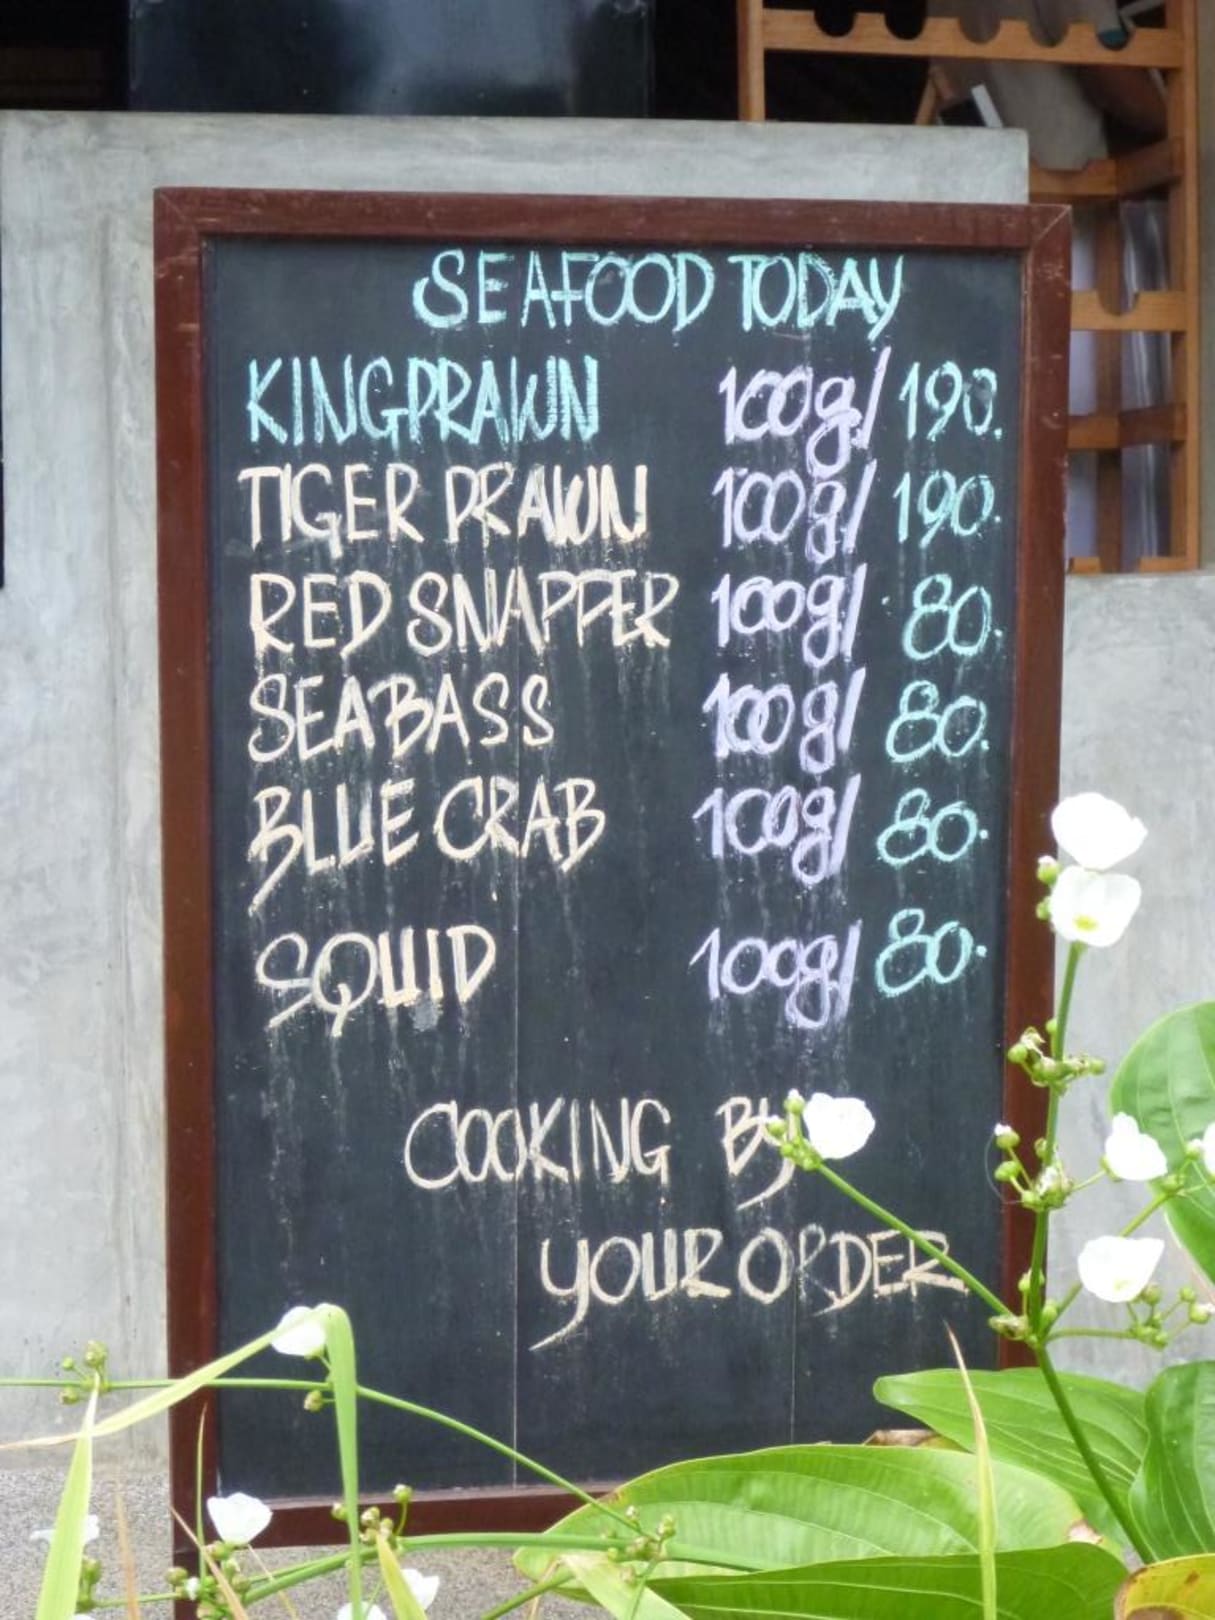 SEAFOOD TODAY
KINGPRAWN 100g/ 190.
TIGER PRAWN 100g/ 190.
RED SNAPPER 100g/ 80.
SEABASS 100g/ 80.
BLUE CRAB 100g/ 80.
SQUID 100g/ 80.
COOKING By
YOUR ORDER